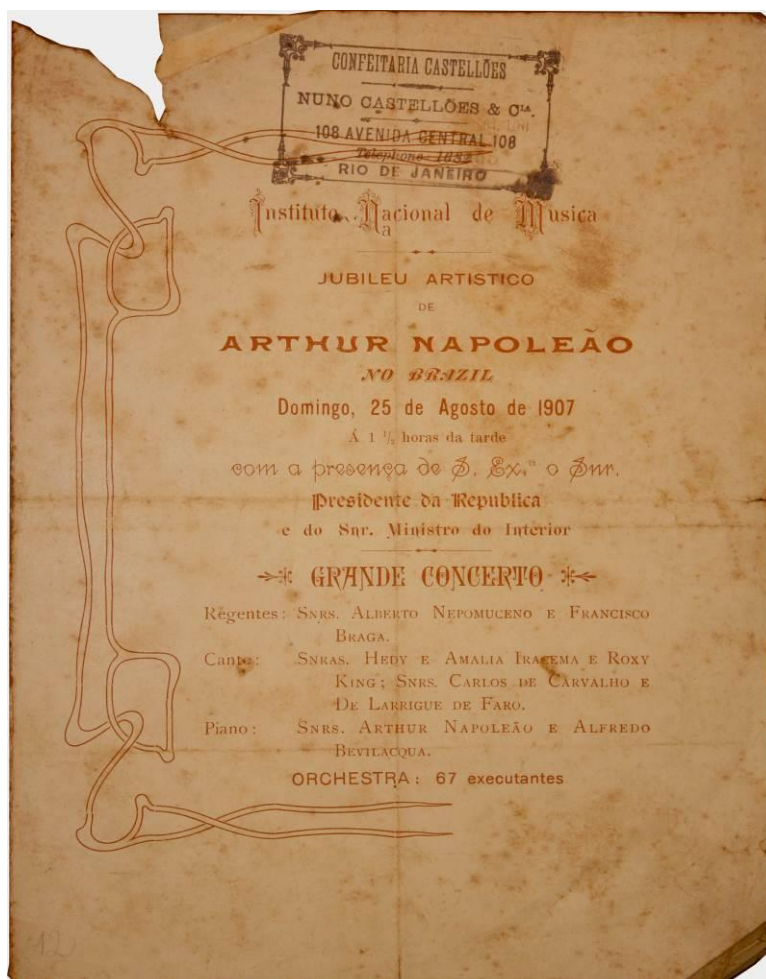 CONFEITARIA CASTELLÕES
NUNO CASTELLÕES & Cia.
108 AVENIDA CENTRAL 108
Telephone 1632
RIO DE JANEIRO
Instituto Nacional de Musica
a
JUBILEU ARTISTICO
DE
ARTHUR NAPOLEÃO
NO BRAZIL
Domingo, 25 de Agosto de 1907
Á 1 1/2 horas da tarde
com a presença de S. Ex.ª o Snr.
Presidente da Republica
e do Snr. Ministro do Interior
GRANDE CONCERTO
Regentes: SNRS. ALBERTO NEPOMUCENO E FRANCISCO
BRAGA.
Canto: SNRAS. HEDY E AMALIA IRACEMA E ROXY
KING; SNRS. CARLOS DE CARVALHO E
DE LARRIGUE DE FARO.
Piano: SNRS. ARTHUR NAPOLEÃO E ALFREDO
BEVILACQUA.
ORCHESTRA: 67 executantes
12